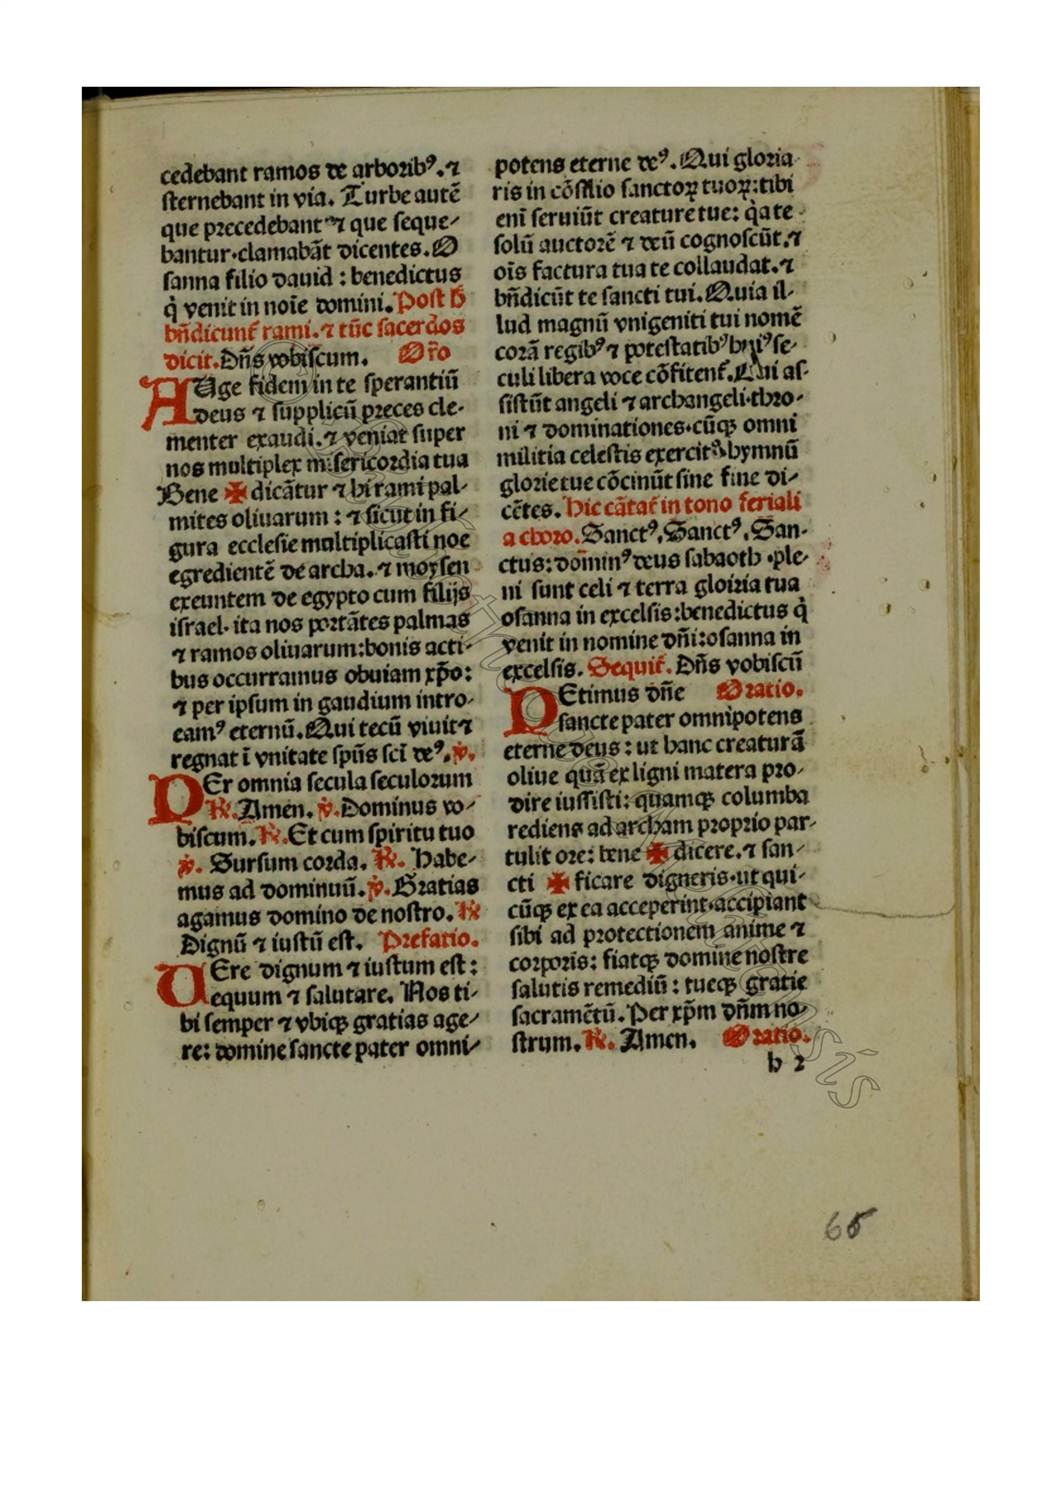 cedebant ramos de arboribꝰ. ⁊
sternebant in via. Turbe autē
que precedebant ⁊ que seque⸗
bantur·clamabāt dicentes. O
sanna filio dauid : benedictus
q̇ venit in noīe domini. Post h̄
bn̄dicunt̄ rami. ⁊ tūc sacerdos
dicit. Dn̄s vobiscum. Or̄o
AUge fidem in te sperantiū
deus ⁊ supplicū preces cle⸗
menter exaudi. ⁊ veniat super
nos multiplex misericordia tua
Bene ✠ dicātur ⁊ hi rami pal⸗
mites oliuarum : ⁊ sicut in fi⸗
gura ecclesie multiplicasti noe
egredientē de archa. ⁊ moysen
exeuntem de egypto cum filijs
israel· ita nos portātes palmas
⁊ ramos oliuarum: bonis acti⸗
bus occurramus obuiam xp̄o:
⁊ per ipsum in gaudium intro⸗
eamꝰ eternū. Qui tecū viuit ⁊
regnat ī vnitate sp̄us sc̄i deꝰ. ℣.
PEr omnia secula seculorum
℟. Amen. ℣. Dominus vo⸗
biscum. ℟. Et cum spiritu tuo
℣. Sursum corda. ℟. Habe⸗
mus ad dominuū. ℣. Gratias
agamus domino de nostro. ℟
Dignū ⁊ iustū est. Prefatio.
UEre dignum ⁊ iustum est :
equum ⁊ salutare. Nos ti⸗
bi semper ⁊ vbiqꝫ gratias age⸗
re: domine sancte pater omni⸗
potens eterne deꝰ. Qui gloria
ris in cōsilio sanctoꝝ tuoꝝ: tibi
enī seruiūt creature tue: q̇a te
solū auctorē ⁊ deū cognoscūt. ⁊
oīs factura tua te collaudat. ⁊
bn̄dicūt te sancti tui. Quia il⸗
lud magnū vnigeniti tui nomē
corā regibꝰ ⁊ potestatibꝰ huiꝰ se⸗
culi libera voce cōfitent̄. Cui as⸗
sistūt angeli ⁊ archangeli·thro⸗
ni ⁊ dominationes·cūqꝫ omni
militia celestis exercitꝰ hymnū
glorie tue cōcinūt sine fine di⸗
cētes. Hic cātat̄ in tono feriali
a choro. Sanctꝰ, Sanctꝰ, San⸗
ctus: dominꝰ deus sabaoth ·ple⸗
ni sunt celi ⁊ terra gloiria tua
osanna in excelsis: benedictus q̇
venit in nomine dn̄i: osanna in
excelsis. Sequit̄. Dn̄s vobiscū
PEtimus dn̄e Oratio.
sancte pater omnipotens
eterne deus : ut hanc creaturā
oliue quā ex ligni matera pro⸗
dire iussisti: quamqꝫ columba
rediens ad archam proprio par⸗
tulit ore: bene ✠ dicere. ⁊ san⸗
cti ✠ ficare digneris·ut qui⸗
cūqꝫ ex ea acceperint·accipiant
sibi ad protectionem anime ⁊
corporis: fiatqꝫ domine nostre
salutis remediū : tueqꝫ gratie
sacramētū. Per xp̄m dn̄m no⸗
strum. ℟. Amen. Oratio.
h 2